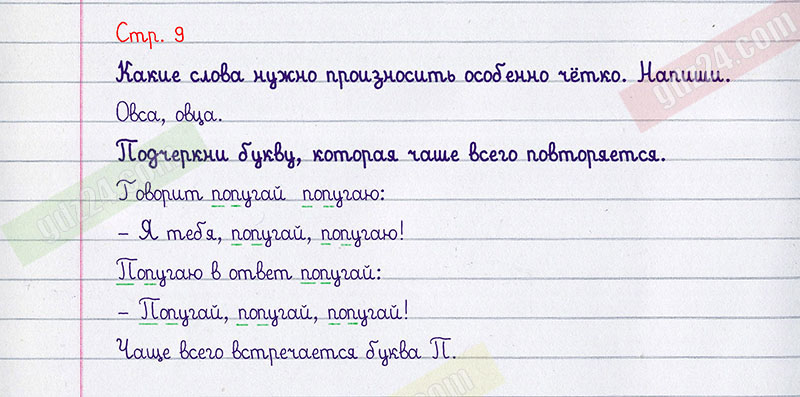 Стр. 9
Какие слова нужно произносить особенно чётко. Напиши.
Овса, овца.
Подчеркни букву, которая чаше всего повторяется.
Говорит попугай попугаю:
– Я тебя, попугай, попугаю!
Попугаю в ответ попугай:
– Попугай, попугай, попугай!
Чаще всего встречается буква П.
gdz24.com
gdz24.com
.com